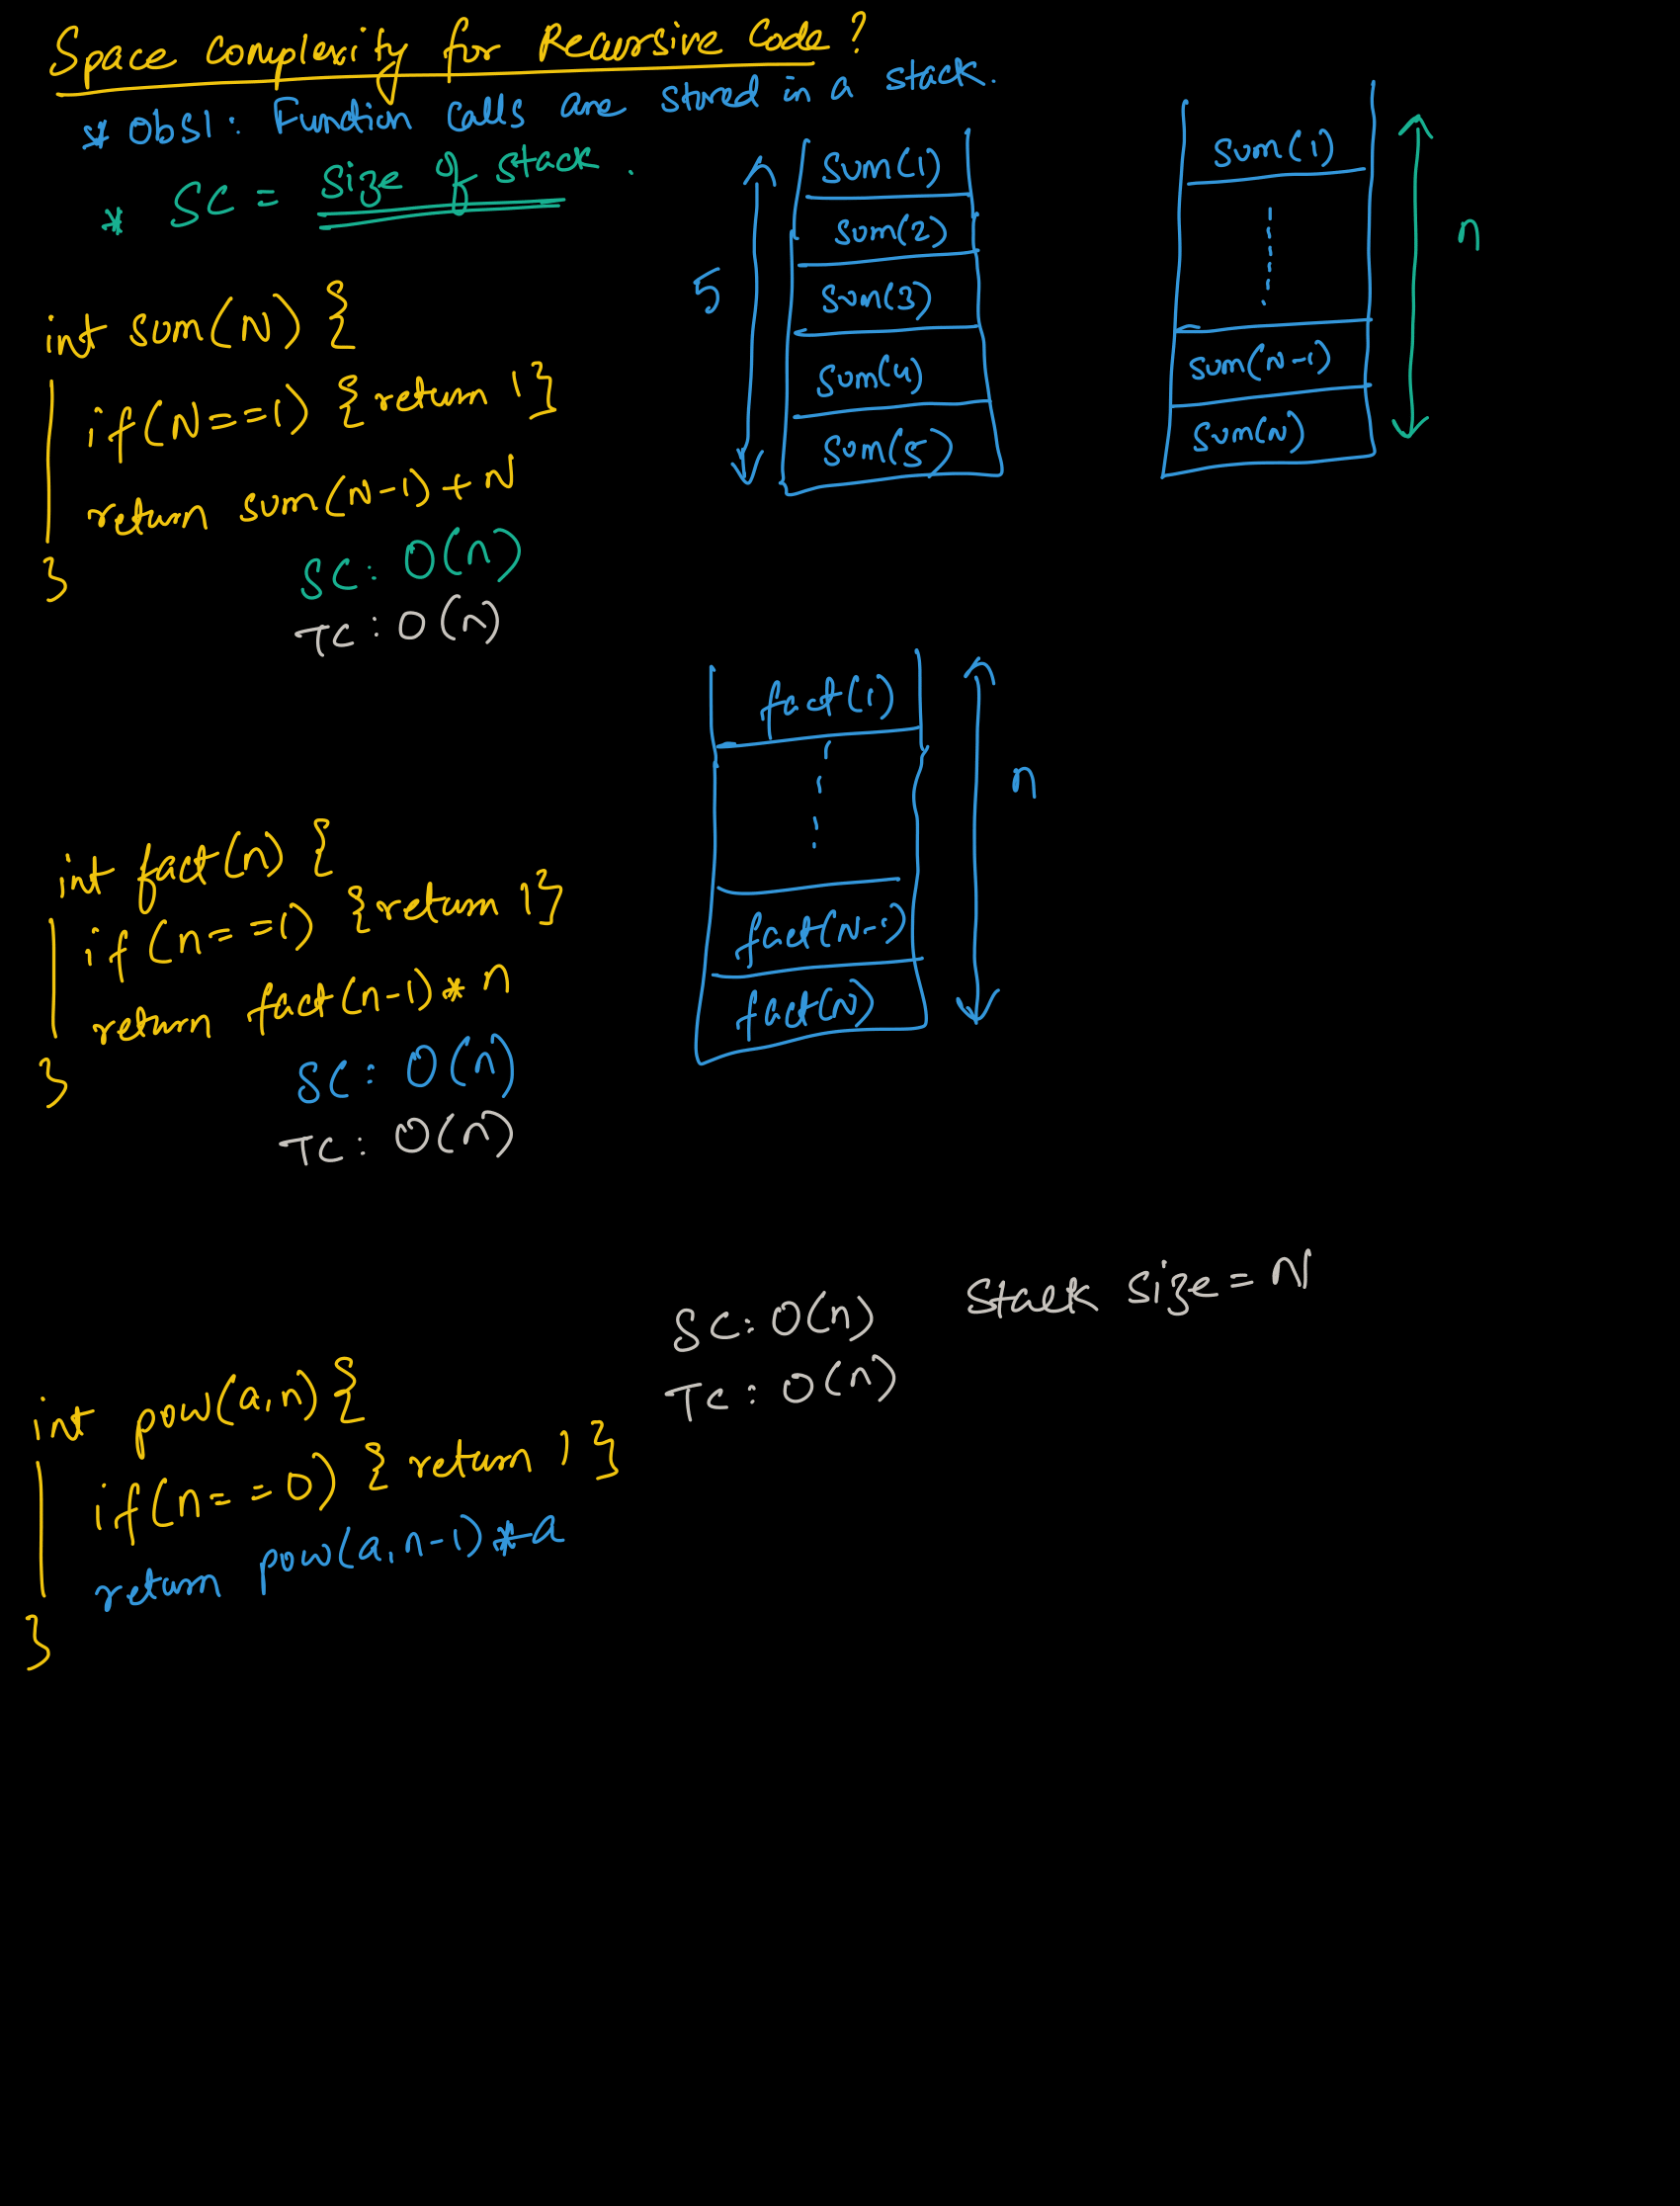 Space Complexity for Recursive Code?
* Obs1: Function calls are stored in a stack.
* SC = Size of stack.
int sum(N) {
if(N==1) {return 1}
return sum(N-1)+N
}
SC: O(n)
TC: O(n)
5
sum(1)
sum(2)
sum(3)
sum(4)
sum(5)
sum(1)
sum(N-1)
sum(N)
n
int fact(n) {
if(n==1) {return 1}
return fact(n-1)*n
}
SC: O(n)
TC: O(n)
fact(1)
fact(N-1)
fact(N)
n
SC: O(n) Stack size = N
TC: O(n)
int pow(a,n){
if(n==0) {return 1}
return pow(a,n-1)*a
}